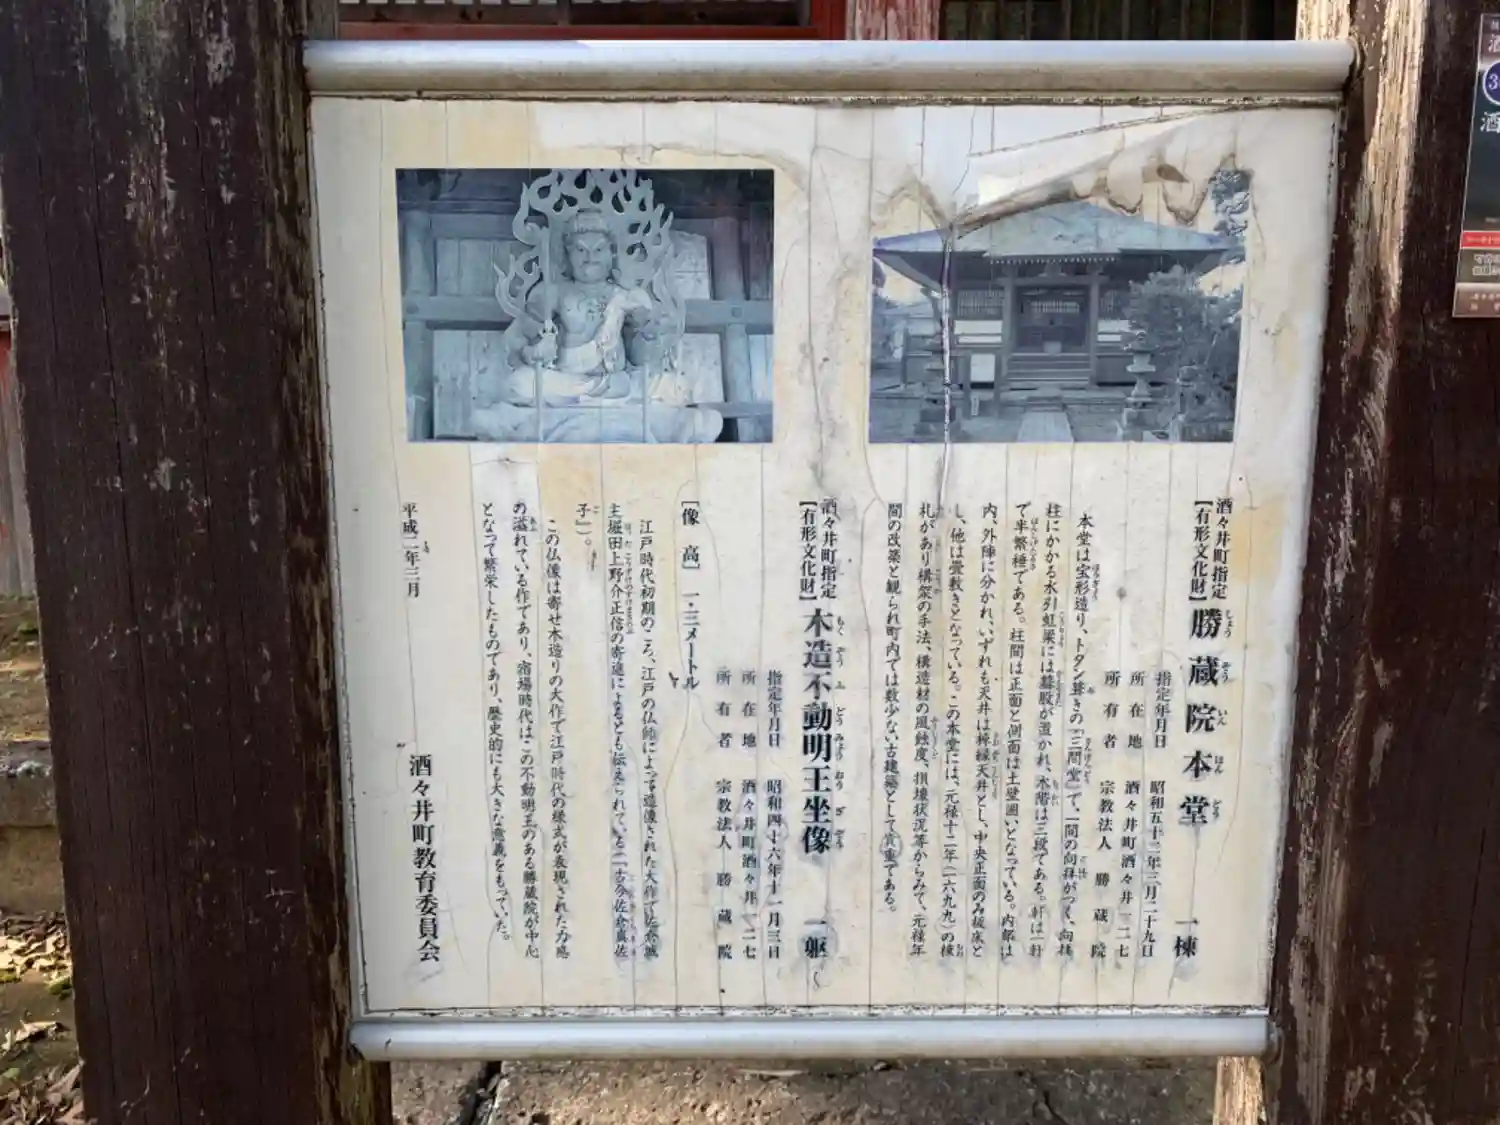 酒々井町指定
【有形文化財】勝蔵院本堂 一棟
しょう ぞう いん ほん どう
指定年月日 昭和五十二年三月二十九日
所在地 酒々井町酒々井一二七
所有者 宗教法人 勝蔵院
本堂は宝形造り、トタン葺きの「三間堂」で、一間の向拝がつく、向拝
柱にかかる水引虹梁には蟇股が置かれ、木階は三段である。軒は二軒
で半繁棰である。柱間は正面と側面は土壁囲いとなっている。内部は
内、外陣に分かれ、いずれも天井は棹縁天井とし、中央正面のみ板床と
し、他は畳敷きとなっている。この本堂には、元禄十二年(一六九九)の棟
札があり構架の手法、構造材の風蝕度、損壊状況等からみて、元禄年
間の改築と観られ町内では数少ない古建築として貴重である。
酒々井町指定
【有形文化財】木造不動明王坐像 一躯
もく ぞう ふ どう みょう おう ざ ぞう
指定年月日 昭和四十六年十一月三日
所在地 酒々井町酒々井一二七
所有者 宗教法人 勝蔵院
[像高] 一・三メートル
江戸時代初期のころ、江戸の仏師によって造像された大作で佐倉城
主堀田上野介正信の寄進によるとも伝えられている(「古今佐倉真佐
子」)。
この仏像は寄せ木造りの大作で江戸時代の様式が表現された力感
の溢れている作であり、宿場時代はこの不動明王のある勝蔵院が中心
となって繁栄したものであり、歴史的にも大きな意義をもっていた。
平成二年三月
酒々井町教育委員会